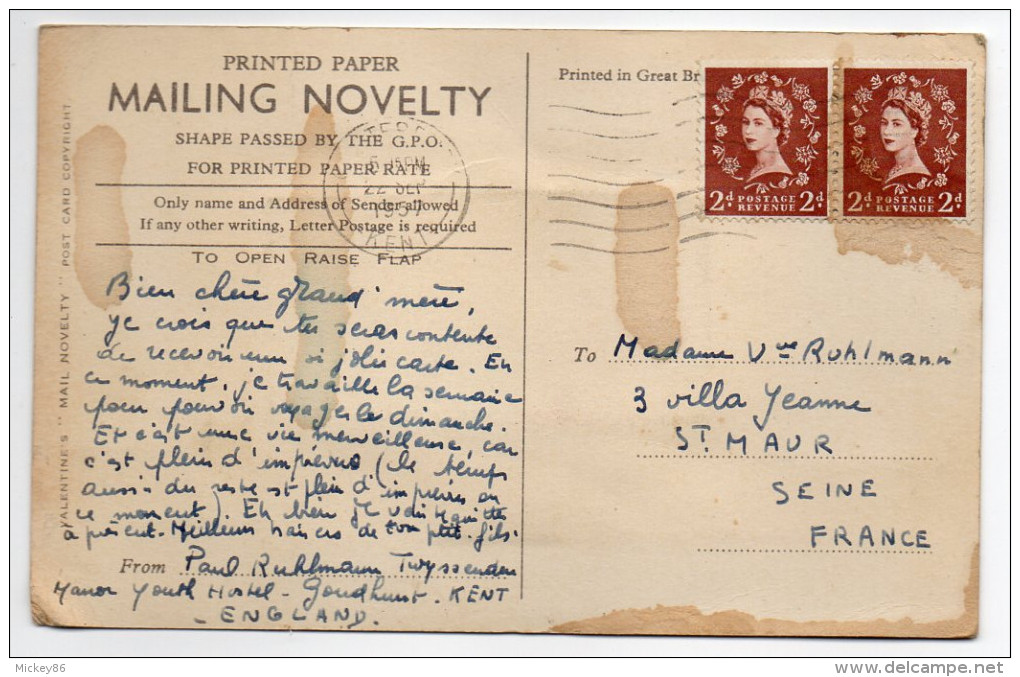 PRINTED PAPER
MAILING NOVELTY
SHAPE PASSED BY THE G.P.O.
FOR PRINTED PAPER RATE
Only name and Address of Sender allowed
If any other writing, Letter Postage is required
TO OPEN RAISE FLAP
VALENTINE'S "MAIL NOVELTY" POST CARD COPYRIGHT
Printed in Great Br
5 15PM
22 SEP
1957
KENT
2d POSTAGE REVENUE 2d
2d POSTAGE REVENUE 2d
Bien chère grand'mère,
je crois que tu seras contente
de recevoir une si jolie carte. En
ce moment, je travaille la semaine
pour pouvoir voyager le dimanche.
Et c'est une vie merveilleuse, car
c'est plein d'imprévus (le temps
aussi du reste est plein d'imprévus en
ce moment). Eh bien je vais te quitter
à présent. Meilleurs baisers de ton ptit-fils.
From Paul Ruhlmann Twyssenden
Manor Youth Hostel - Goudhurst. KENT
- ENGLAND.
To Madame Vve Ruhlmann
3 villa Jeanne
ST MAUR
SEINE
FRANCE
Mickey86
delcampe.net